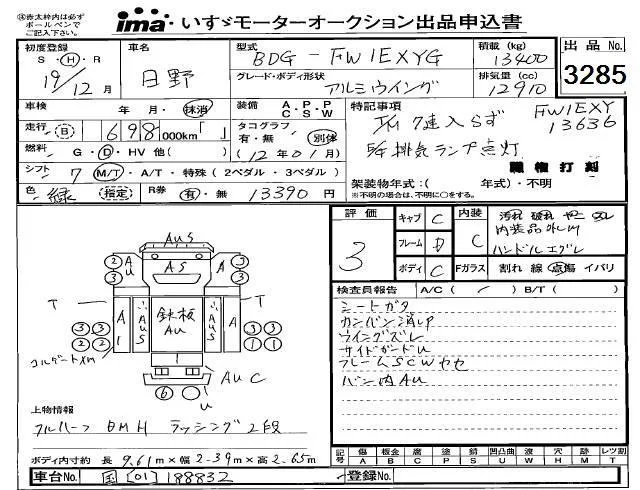 ㊟赤太枠内は必ず
ボールペンで
ご記入下さい。
ima いすゞモーターオークション出品申込書
初度登録 S・H・R 19/12月
車名 日野
型式 BDG-FW1EXYG
グレード・ボディ形状 アルミウイング
積載(kg) 13400
排気量(cc) 12910
出品No. 3285
車検 年・月・抹消
走行 (B) 698 000km「 」
燃料 G・D・HV 他( )
シフト 7 M/T・A/T・特殊(2ペダル・3ペダル)
色 緑 (指定) R券 有・無 13390円
装備 A.P.P C S W
タコグラフ 有・無・別体
(12年01月)
特記事項 FW1EXY
13636
7速入らず
排気ランプ点灯
職権打刻
架装物年式:( 年式)・不明
※不明の場合は、不明に○をする。
評価 3
キャブ C
フレーム D
ボディ C
内装 C
Fガラス 割れ 線 点傷 イバリ
内装品外しM
ハンドルスグレ
検査員報告 A/C( / ) B/T( )
シートガタ
カンバン消しP
ウイングズレ
サイドガードU
フレームSCWヤセ
バン内AU
AUS
AS
2 3 AU
3 3
T T
A1 AUS 鉄板 AU AUS A
3 3 2 2
3 3 1 1
コルゲートXM
6 AUC
U
上物情報
フルハーフ BMH ラッシング2段
ボディ内寸約 長 9.61m×幅 2.39m×高 2.65m
記号 傷A 板金B 腐C 塗P 錆S 凹凸曲U 波W 穴H 跡M レツ割T
車台No. 国[01]188832
登録No.